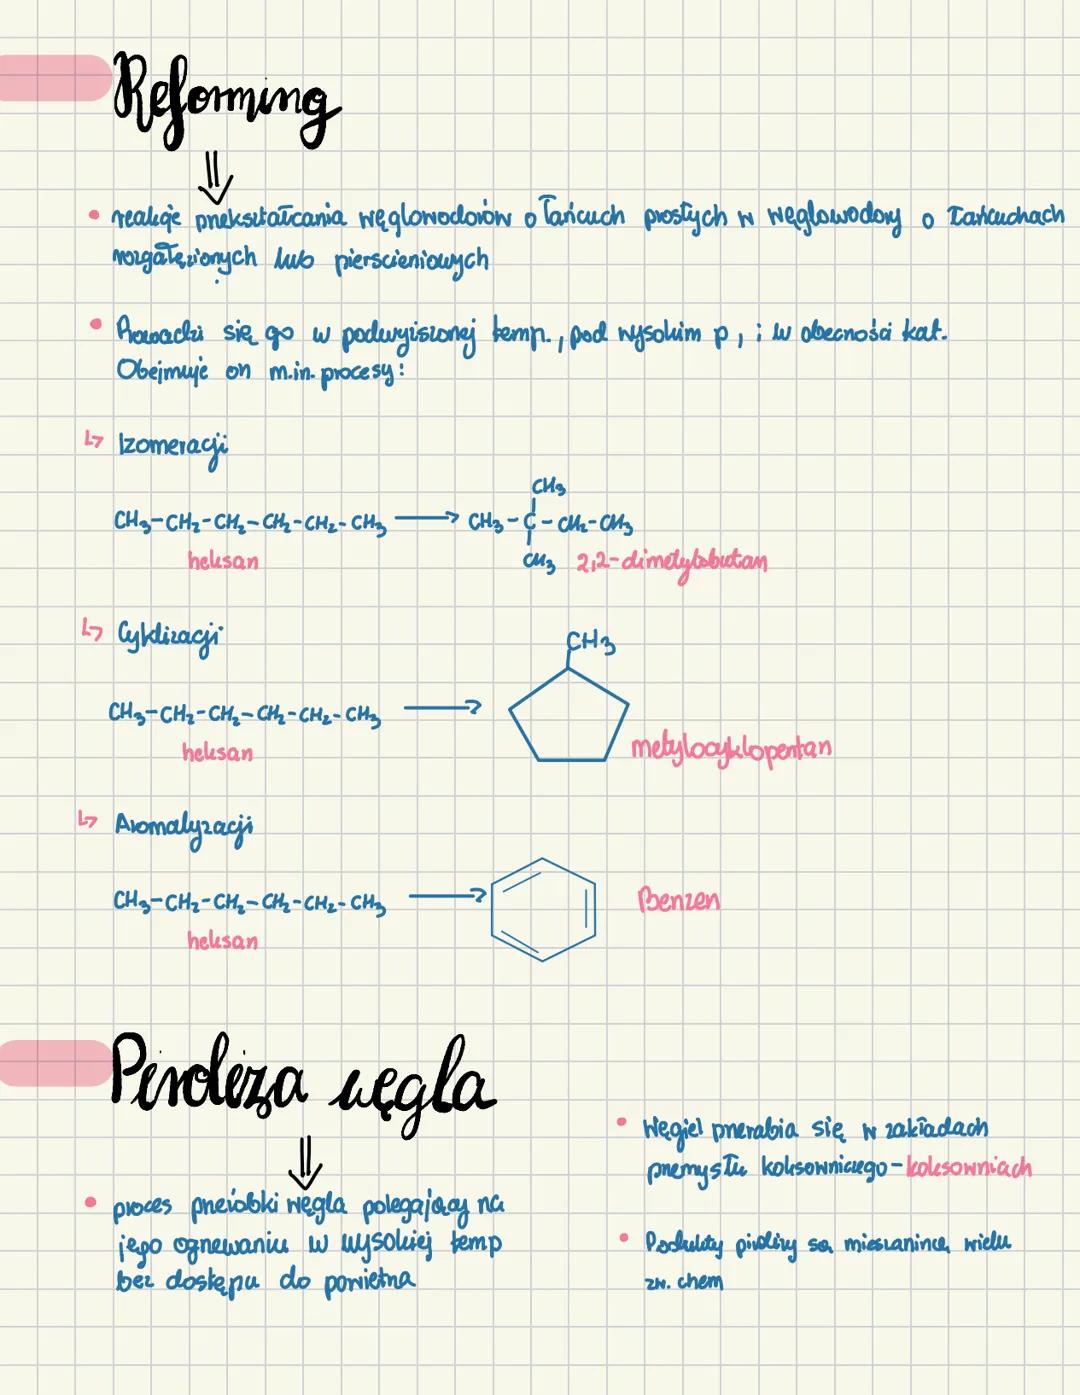 Reforming
• reakcje przekształcania węglowodorów o łańcuch prostych w węglowodory o łańcuchach
rozgałęzionych lub pierscieniowych
• Prowadzi się go w podwyższonej temp., pod wysokim p, i w obecności kat.
Obejmuje on m.in. procesy:
↳ Izomeracji
CH₃
CH₃-CH₂-CH₂-CH₂-CH₂-CH₃ → CH₃-C-CH₂-CH₃
heksan
CH₃ 2,2-dimetylobutan
↳ Cyklizacji
CH₃
CH₃-CH₂-CH₂-CH₂-CH₂-CH₃ →
heksan
metylocyklopentan
↳ Aromatyzacji
CH₃-CH₂-CH₂-CH₂-CH₂-CH₃ → Benzen
heksan
Piroliza węgla
• proces przeróbki węgla polegający na
jego ogrzewaniu w wysokiej temp
bez dostępu do powietrza
• Węgiel przerabia się w zakładach
przemysłu koksowniczego - koksowniach
• Produkty pirolizy są mieszaniną wielu
zw. chem